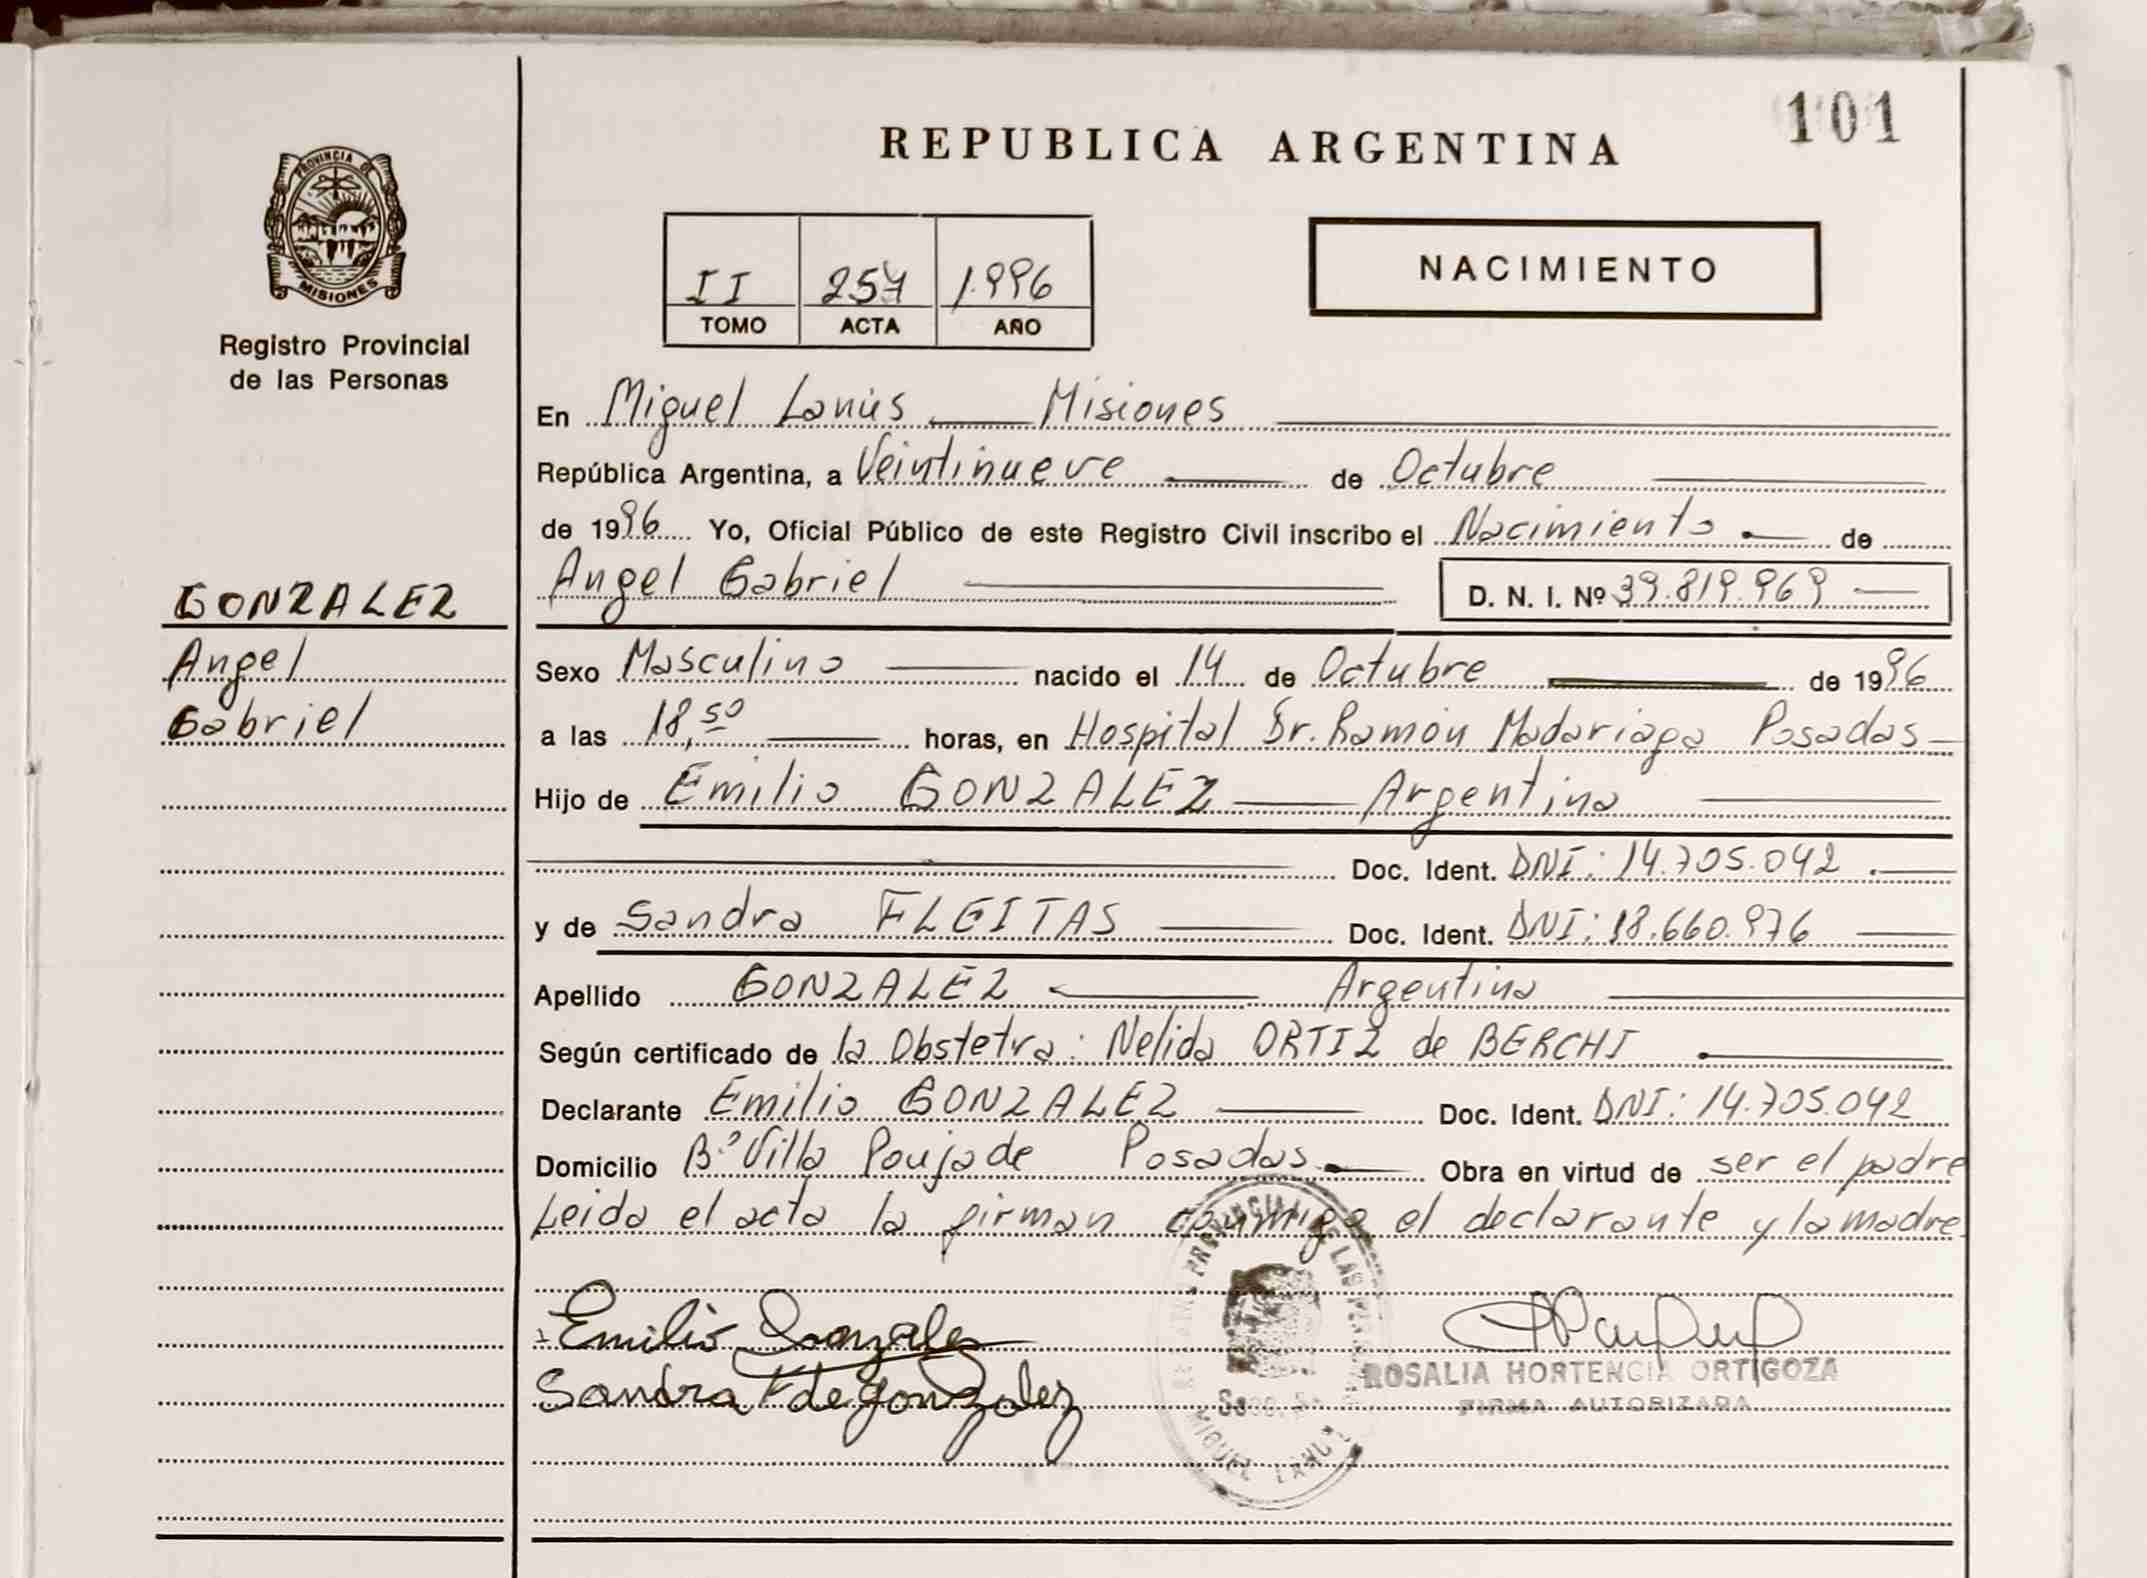 101
REPUBLICA ARGENTINA
PROVINCIA DE
MISIONES
Registro Provincial
de las Personas
II 257 1.996
TOMO ACTA AÑO
NACIMIENTO
En Miguel Lanús Misiones
República Argentina, a Veintinueve de Octubre
de 1996 Yo, Oficial Público de este Registro Civil inscribo el Nacimiento de
Angel Gabriel D. N. I. Nº 39.819.969
GONZALEZ
Angel
Gabriel
Sexo Masculino nacido el 14 de Octubre de 1996
a las 18,50 horas, en Hospital Dr. Ramón Madariaga Posadas
Hijo de Emilio GONZALEZ Argentino
Doc. Ident. DNI: 14.705.042
y de Sandra FLEITAS Doc. Ident. DNI: 18.660.976
Apellido GONZALEZ Argentina
Según certificado de la Obstetra: Nelida ORTIZ de BERCHI
Declarante Emilio GONZALEZ Doc. Ident. DNI: 14.705.042
Domicilio Bº Villa Poujade Posadas Obra en virtud de ser el padre
Leida el acta la firman conmigo el declarante y la madre
Emilio Gonzalez
Sandra F de gonzalez
ROSALIA HORTENCIA ORTIGOZA
FIRMA AUTORIZADA
PROVINCIAL DE LAS
MIGUEL LANUS